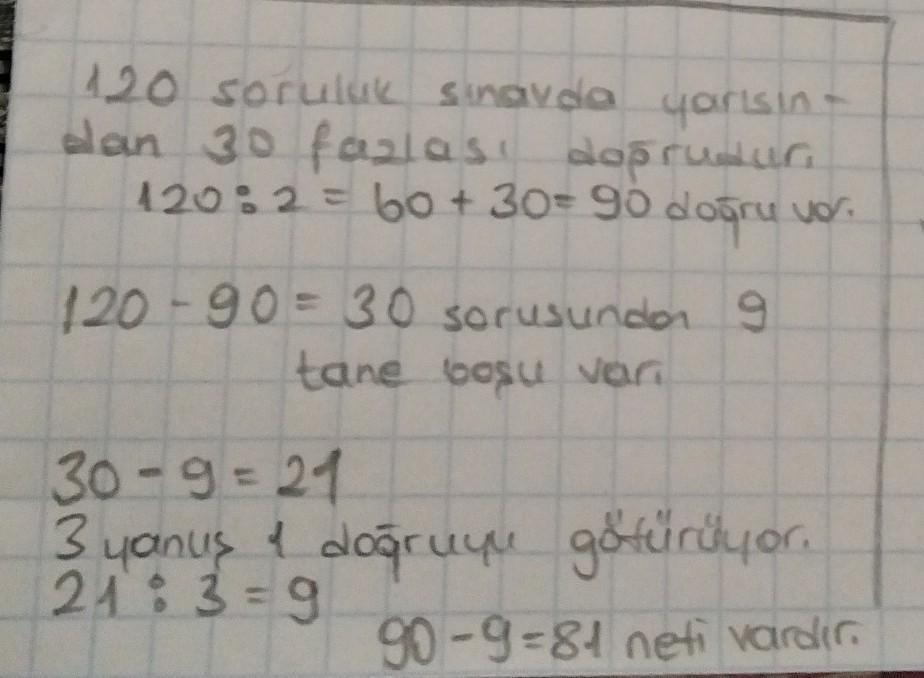 120 soruluk sınavda yarısın-
dan 30 fazlası doğrudur.
120:2 = 60 + 30 = 90 doğru var.
120 - 90 = 30 sorusundan 9
tane boşu var.
30 - 9 = 21
3 yanlış 1 doğruyu götürüyor.
21 : 3 = 9
90 - 9 = 81 neti vardır.